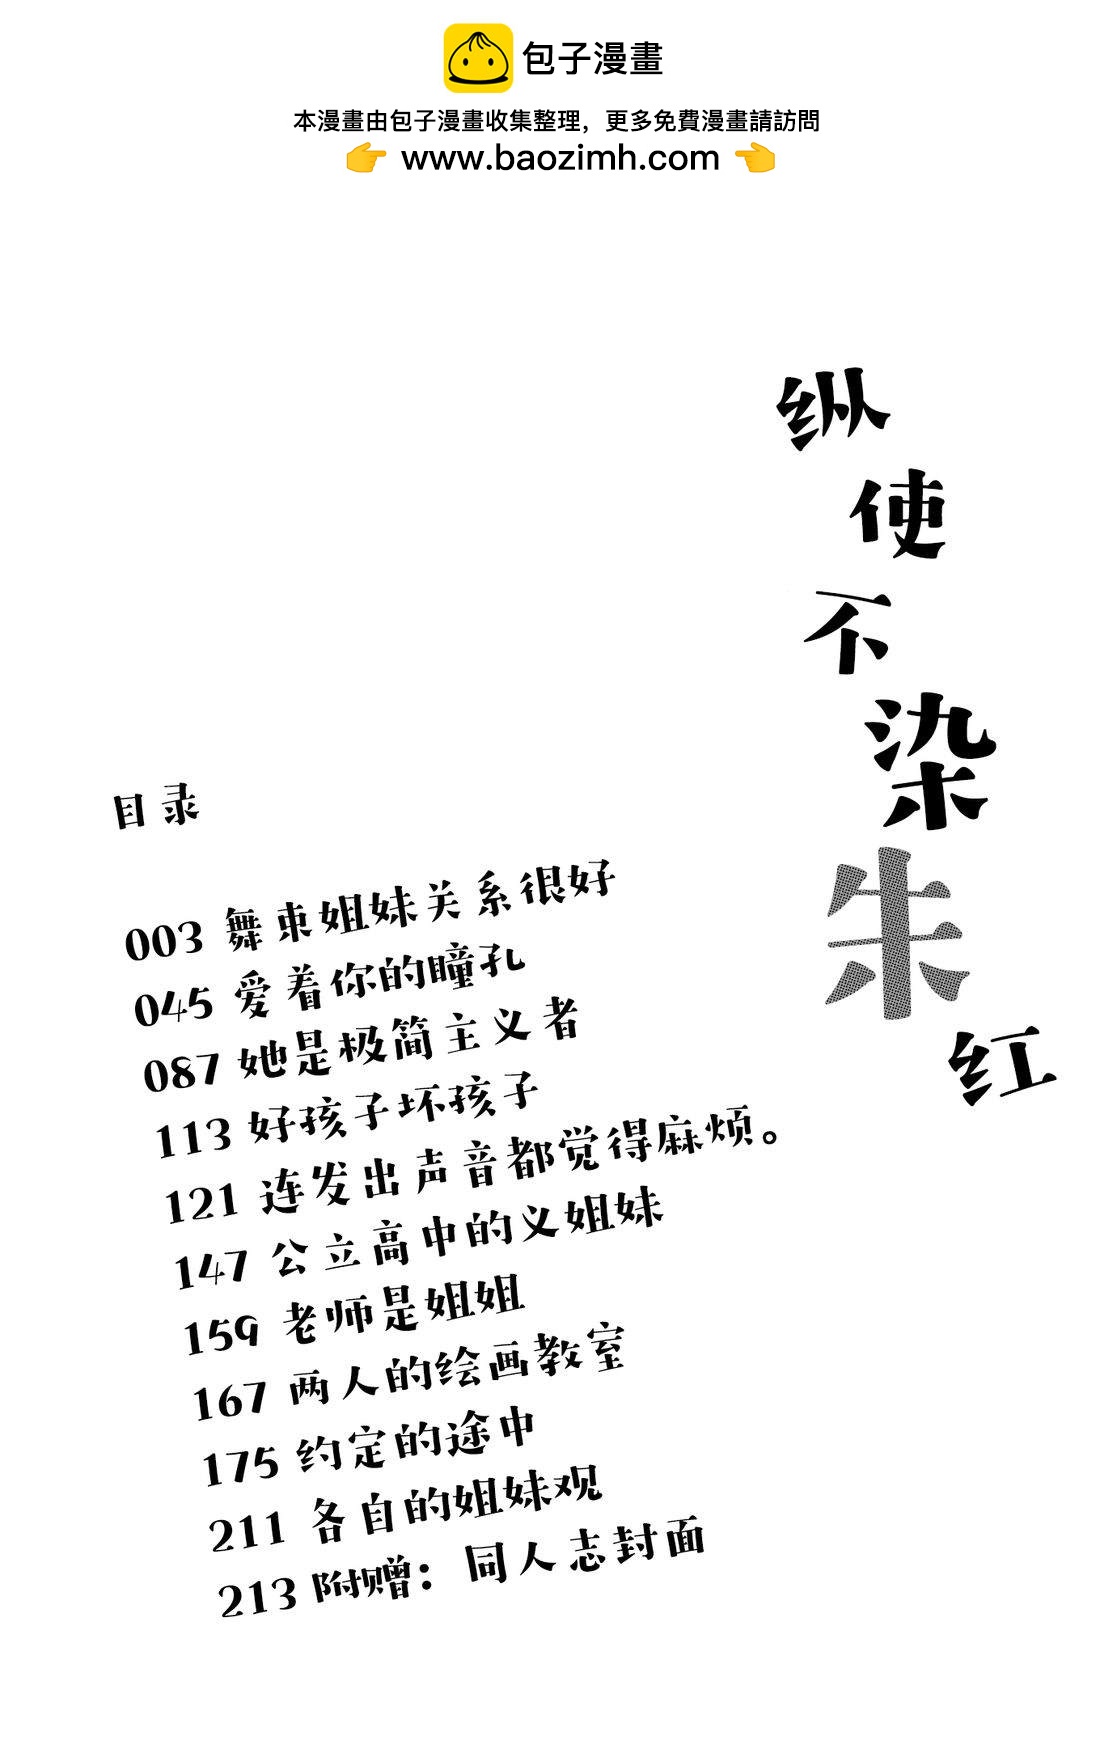 包子漫畫
本漫畫由包子漫畫收集整理，更多免費漫畫請訪問
👉 www.baozimh.com 👈
纵使不染朱红
目录
003 舞束姐妹关系很好
045 爱着你的瞳孔
087 她是极简主义者
113 好孩子坏孩子
121 连发出声音都觉得麻烦。
147 公立高中的义姐妹
159 老师是姐姐
167 两人的绘画教室
175 约定的途中
211 各自的姐妹观
213 附赠：同人志封面